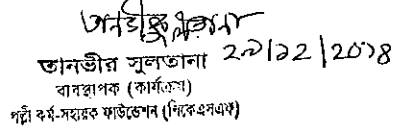 তানভীর সুলতানা
তানভীর সুলতানা ২৯/১২/২০১৪
ব্যবস্থাপক (কার্যক্রম)
পল্লী কর্ম-সহায়ক ফাউন্ডেশন (পিকেএসএফ)